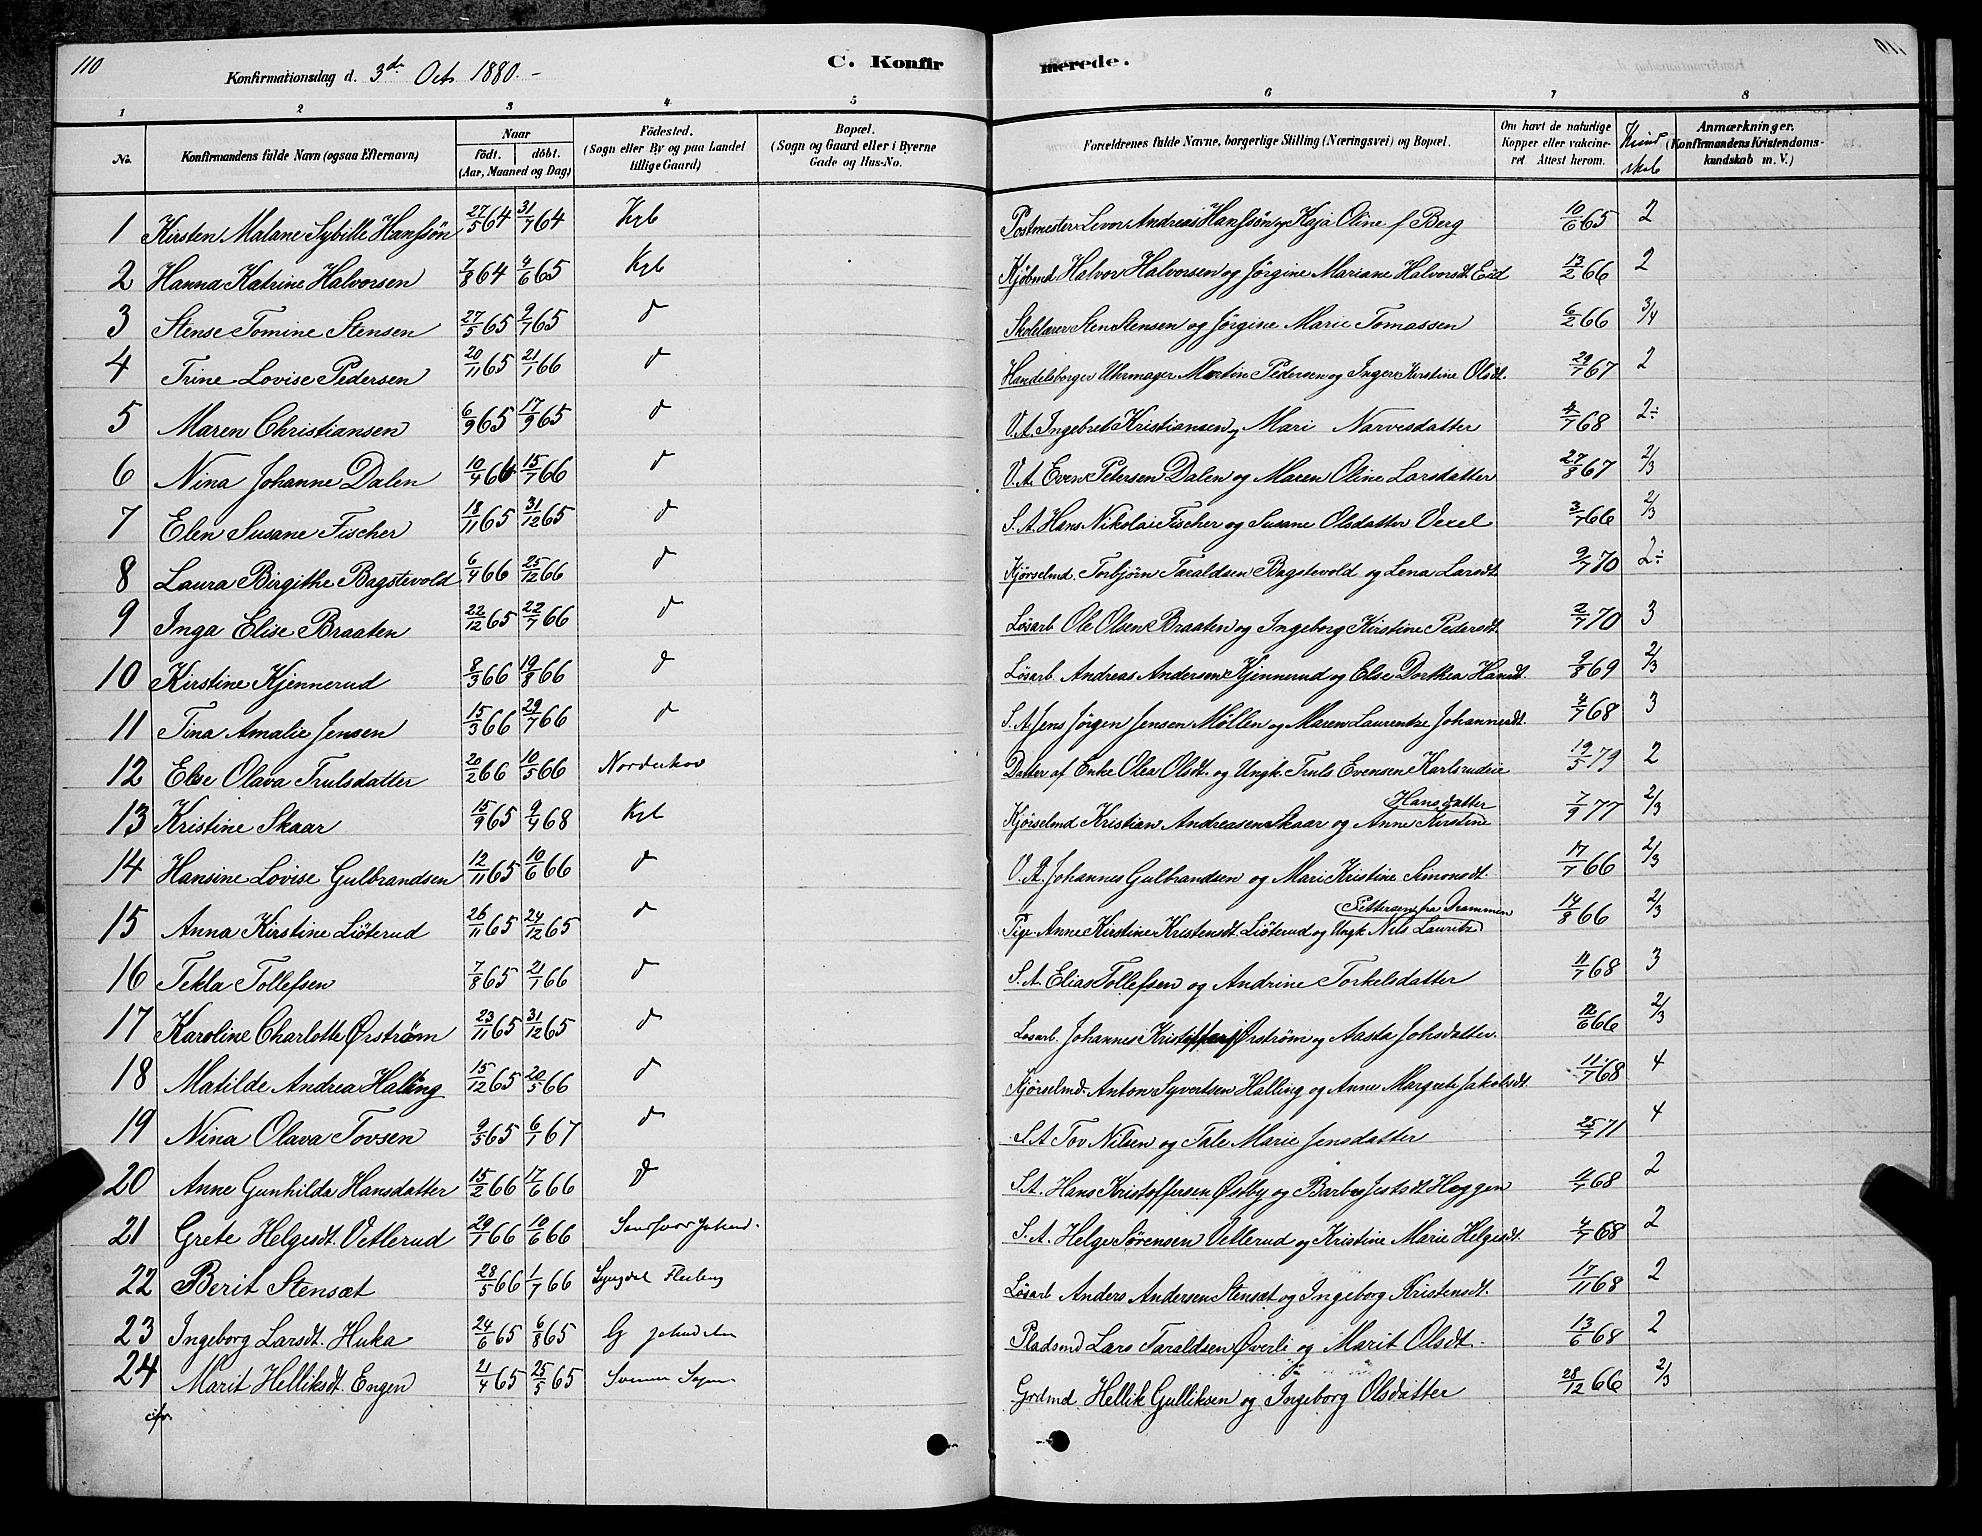 110
Konfirmationsdag d. 3de Oct 1880. -
C. Konfirmerede.
1 2 3 4 5 6 7 8
No. Konfirmandens fulde Navn (ogsaa Efternavn) Naar født. døbt. (Aar, Maaned og Dag) Fødested. (Sogn eller By og paa Landet tillige Gaard) Bopæl. (Sogn og Gaard eller i Byerne Gade og Hus-No. Forældrenes fulde Navne, borgerlige Stilling (Næringsvei) og Bopæl. Om havt de naturlige Kopper eller vakcineret. Attest herom. Kundskab Anmærkninger. (Konfirmandens Kristendomskundskab m. V.)
1 Kirsten Malane Sybille Hanssøn 27/5 64 31/7 64 Kgb Postmester Levor Andreas Hanssøn og Kaja Oline f Berg 10/6 65 2
2 Hanna Katrine Halvorsen 7/8 64 4/6 65 Kgb Kjøbmd Halvor Halvorsen og Jørgine Mariane Halvorsdt. Eid 13/2 66 2
3 Stense Tomine Stensen 27/5 65 9/7 65 d Skolelærer Sten Stensen og Jørgine Marie Tomassen 6/2 66 3/4
4 Trine Lovise Pedersen 20/11 65 21/1 66 d Handelsborger Uhrmager Martin Pedersen og Inger Kirstine Olsdt. 29/7 67 2
5 Maren Christiansen 6/9 65 17/9 65 d V.A. Ingebret Kristiansen og Mari Narvesdatter 4/7 68 2÷
6 Nina Johanne Dalen 10/4 66 15/7 66 d V.A. Even Petersen Dalen og Maren Oline Larsdatter 27/8 67 2/3
7 Elen Susane Fischer 18/11 65 31/12 65 d S.A. Hans Nikolai Fischer og Susane Olsdatter Vexel 3/7 66 2/3
8 Laura Birgithe Bagstevold 6/4 66 25/12 66 d Kjørselmd. Torbjørn Taraldsen Bagstevold og Lena Larsdt. 9/7 70 2÷
9 Inga Elise Braaten 22/12 65 22/7 66 d Løsarb Ole Olsen Braaten og Ingeborg Kirstine Pedersdt. 2/7 70 3
10 Kirstine Kjennerud 8/3 66 19/8 66 d Løsarb. Andreas Andersen Kjennerud og Else Dorthea Hansdt. 9/8 69 2/3
11 Tina Amalie Jensen 15/3 66 29/7 66 d S.A. Jens Jörgen Jensen Møllen og Maren Laurentze Johannesdt. 4/7 68 3
12 Else Olava Trulsdatter 20/2 66 10/5 66 Norderhov Datter af Enke Olea Olsdt. og Ungk. Truls Evensen Karlsrudeie 19/5 79 2
13 Kristine Skaar 15/9 65 9/4 68 Kgb Kjørselmd Kristian Andreasen Skaar og Anne Kirstine Hansdatter 7/9 77 2/3
14 Hansine Lovise Gulbrandsen 12/11 65 10/6 66 d V.A. Johannes Gulbrandsen og Mari Kristine Simonsdt. 17/7 66 2/3
15 Anna Kirstine Liøterud 26/11 65 24/12 65 d Pige Anne Kirstine Kristensdt. Liøterud og Ungk Nils Lauritz Pettersen fra Drammen 14/8 66 2/3
16 Tekla Tollefsen 7/8 65 21/1 66 d S.A. Elias Tollefsen og Andrine Torkelsdatter 11/7 68 3
17 Karoline Charlotte Ørstrøm 23/11 65 31/12 65 d Løsarb. Johannes Kristoffersen Ørstrøm og Aasta Johsdatter. 12/6 66 2/3
18 Matilde Andrea Halling 15/12 65 20/5 66 d Kjørselmd. Anton Syvertsen Halling og Anne Margrete Jakobsdt. 11/7 68 4
19 Nina Olava Tovsen 9/5 65 6/1 67 d S.A. Tov Nilsen og Tale Marie Jensdatter 25/7 71 4
20 Anne Gunhilda Hansdatter 15/2 66 17/6 66 d S.A. Hans Kristoffersen Østby og Barbro Hoggen 11/7 68 2
21 Grete Helgesdt. Vetlerud 29/1 66 10/6 66 S.A. Helge Sørensen Vetlerud og Kristine Marie Helgesdt. 4/7 68 2
22 Berit Stensæt 28/5 66 1/7 66 Lyngdal Flesberg Løsarb Anders Andersen Stensæt og Ingeborg Kristensdt. 17/11 68 2
23 Ingeborg Larsdt. Huka 24/6 65 6/8 65 Pladsmd Lars Taraldsen Øverli og Marit Olsdt. 13/6 68 2
24 Marit Helliksdt. Engen 21/4 65 25/5 65 Svenne Sogn Grdmd Hellik Gulliksen og Ingeborg Olsdatter 28/12 66 2/3
cfr.